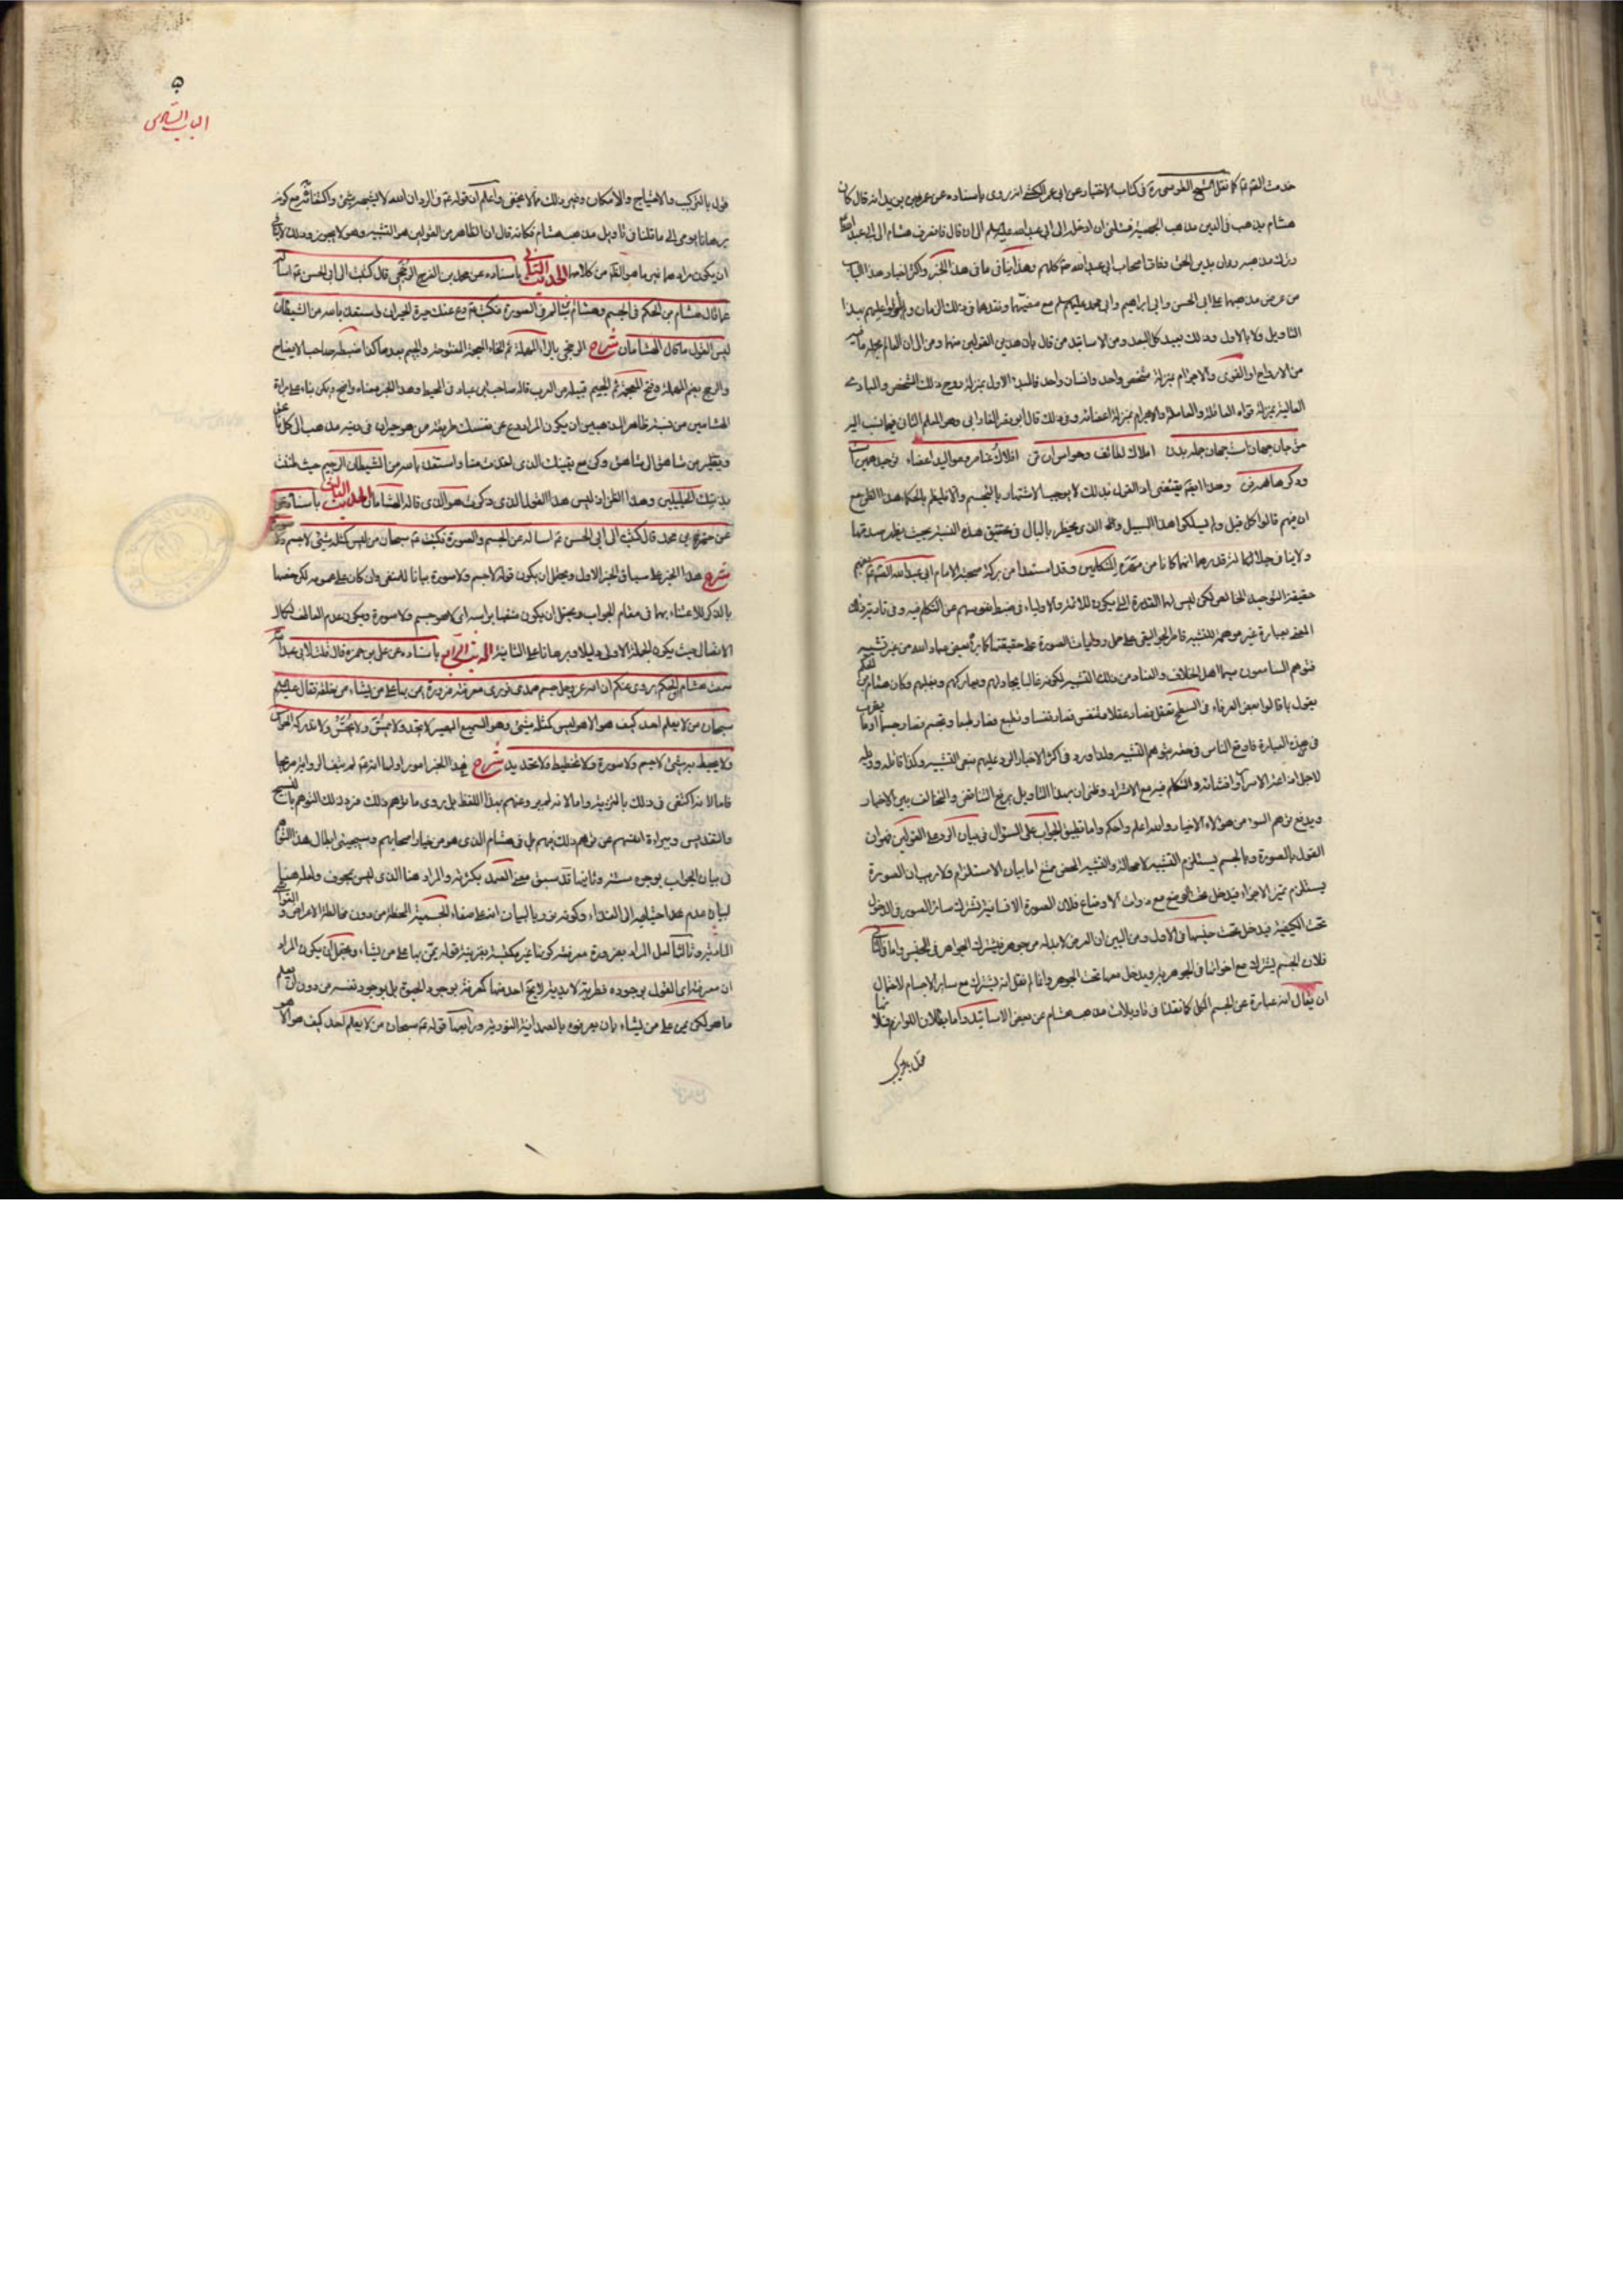 خدمت القمّ عمّ كما نقل الشيخ الطوسى ره فى كتاب الاختيار عن ابى عمر الكشى انه روى باسناده عن عمر بن يزيد انه قال كان
هشام يذهب فى الدين مذهب الجهمية فسئلنى ان ادخله الى ابى عبد الله عليه السلم الى ان قال فانصرف هشام الى ابى عبد الله
وترك مذهبه ودان بدين الحق وفاق اصحاب ابى عبد الله عمّ كلهم وهذا ينافى ما فى هذا الخبر واكثر اخبار هذا الباب
من عرض مذهبهما على ابى الحسن وابى ابراهيم وابى محمد عليهم السلم مع
التاويل ولا بالاول وذلك بعيد كل البعد ومن الاساتيد من قال بان هذين القولين منهما ومن ال ان العالم بجملة ما فيه
من الارواح او القوى والاجرام بمنزلة شخص واحد وانسان واحد فالمبدء الاول بمنزلة روح ذلك الشخص والمبادى
العالية بمنزلة قواه العاقلة والعاملة والاجرام بمنزلة اعضائه وفى ذلك قال ابو نصر الفارابى وهو المعلم الثانى فيما نسب اليه
حق جان جهان است وجهان جمله بدن املاك لطائف وحواس آن تن افلاك عناصر ومواليد اعضاء توحيد همين است
ودكرها همه فن وهذا ايضا يقتضى اذ القول بذلك لا يوجب الاشتهار بالتجسيم والا لم
ان منهم قالوا كل قيل ولم يسلكوا هذا السبيل والله الذى يخطر بالبال فى تحقيق هذه النسبة بحيث يظهر صدقها
ولا ينافى جلالتهما لنقدرهما انهما كانا من مهرة المتكلمين وقد استفدا من بركة صحبة الامام ابى عبد الله القمّ عمّ
حقيقة التوحيد الخالص لكن ليس لهما القدرة التى يكون للائمة والاولياء فى ضبط نفوسهم عن التكلم فيه وفى تادية ذلك
المعنى بعبارة غير موهمة للتشبيه فاما الجواليقى على حمل روايات الصورة على حقيقتها كما يراه بعض عباد الله من غير تشبيه
فتوهم السامعون سيما اهل الخلاف والعناد من ذلك التشبيه لكونه غالبا يجادلهم ويعاركهم ويفحمهم وكان هشام بن الحكم
يقول ما قالوا بعض العرفاء فى السطح تعقل فصار عقلا وتنفس فصار نفسا وتطبع فصار طبعا وتجسم فصار جسما او ما يقرب
فى هذه العبارة فاوقع الناس فى حقه بتوهم التشبيه ولذا ورد فى اكثر الاخبار الرد عليهم بنفى التشبيه وكذا قائله وويله
لاجل اذاعة الاسرار وافشائه والتكلم فيه مع الاشرار وظنى ان بهذا التاويل يرتفع التناقض والتخالف بين الاخبار
ويدفع توهم السوء من هؤلاء الاخيار والله اعلم واحكم واما تطبيق الجواب على السؤال فى بيان الرد على القولين فهو ان
القول بالصورة وبالجسم يستلزم التشبيه لا محالة والتشبيه الحض ممتنع اما بيان الاستلزام فلا ريب ان الصورة
يستلزم تميز الاجزاء فيدخل تحت الوضع مع ذوات الاوضاع فلان الصورة الانسانية تشترك سائر الصور فى الدخول
تحت الكيفية فيدخل تحت جنسها فى الاول ومن البين ان العرض لا بد له من جوهر فيشترك الجواهر فى الجنس واما فى الثانى
فلان الجسم يشترك مع اخواتها فى الجوهرية ويدخل معها تحت الجوهر وانما لم نقل انه يشترك مع سائر الاجسام لاحتمال
ان يقال انه عبارة عن الجسم الكل كما نقلنا فى تاويلات مذهب هشام عن بعض الاساتيد واما بطلان اللوازم فلا نها
قول بالتركيب
٥
الباب السادس
قول بالتركيب والاحتياج والامكان وغير ذلك مما لا يخفى واعلم ان قوله عمّ فى الرد ان الله لا يشبهه شئ واكتفائه مع كونه
برهانا يومى الى ما قلنا فى تاويل مذهب هشام فكانه قال ان الظاهر من القولين هو التشبيه وهو لا يجوز وذلك لا ينافى
ان يكون مرادهما غير ما هو الظاهر من كلامهما الحديث الثانى باسناده عن محمد بن الفرج الرخجى قال كتبت الى ابى الحسن عمّ اسأله
عما قال هشام بن الحكم فى الجسم وهشام بن سالم فى الصورة فكتب عمّ دع عنك حيرة الحيران واستعذ بالله من الشيطان
ليس القول ما قال الهشامان شرح الرخجى بالراء المهملة ثم الخاء المعجمة المفتوحة والجيم بعدها كذا ضبطه صاحب الايضاح
والرخج بضم المهملة وفتح المعجمة ثم الجيم قبيلة من العرب قاله صاحب بن عباد فى المحيط وهذا الخبر معناه واضح ويمكن بناء على براءة
الهشامين من نسبة ظاهر المذهبين ان يكون المراد دع عن نفسك طريقة من هو حيران فى دينه يذهب الى كل ناعق
وينتقل من شاهق الى شاهق وكن مع يقينك الذى اخذت منا واستعذ بالله من الشيطان الرجيم حيث ظننت
بذينك الجليلين وهذا الظن اذ ليس هذا القول الذى ذكرت هو الذى قاله الهشامان الحديث الثالث باسناده
عن حمزة بن محمد قال كتبت الى ابى الحسن عمّ اساله عن الجسم والصورة فكتب عمّ سبحان من ليس كمثله شئ لا جسم ولا صورة
شرح هذا الخبر على سياق الخبر الاول ويحتمل ان يكون قوله لا جسم ولا صورة بيانا للمنفى وان كان على عمومه لكن خصهما
بالذكر للاعتناء بهما فى مقام الجواب ويحتمل ان يكون منفيا براسه اى لا هو جسم ولا صورة ويكون عدم العاطف لكمال
الاتصال حيث يكون الجملة الاولى دليلا وبرهانا على الثانية الحديث الرابع باسناده عن على بن حمزة قال قلت لابى عبد الله عمّ
سمعت هشام بن الحكم يروى عنكم ان الله عز وجل جسم صمدى نورى معرفته ضرورة يمن بها على من يشاء من خلقه فقال عليه السلم
سبحان من لا يعلم احد كيف هو الا هو ليس كمثله شئ وهو السميع البصير لا يحد ولا يحس ولا يجس ولا تدركه الحواس
ولا يحيط به شئ لا جسم ولا صورة ولا تخطيط ولا تحديد شرح فى هذا الخبر امور اولها انه عمّ لم ينف الرواية صريحا
فاما لانه اكتفى فى ذلك بالتنزيه واما لانه لم يرو عنهم بهذا اللفظ بل روى ما توهم ذلك فرد ذلك التوهم بالتسبيح
والتقديس وببراءة انفسهم عن توهم ذلك منهم بل فى هشام الذى هو من خيار اصحابهم وسيجيئ ابطال هذا التوهم
فى بيان الجواب بوجوه ستة وثانيها قد سبق معنى الصمد بكثرته والمراد هنا الذى ليس بجوف ولعله هنا
لبيان عدم احتياجه الى الغذاء وكونه نوريا لبيان انه على صفاء الجسمية المحضة من دون مخالطة الاعراض والتوابع
المادية وثالثها لعل المراد بضرورة معرفته كونها غير مكتسبة بقرينة قوله يمن بها على من يشاء ويحتمل ان يكون المراد
ان معرفته اى القول بوجوده فطرية لا بديهية لا يخ احد منها كمعرفته بوجود الحيوة بل بوجود نفسه من دون ان يعلم
ما هو لكن يمن على من يشاء بان يعرفوه بالصمدانية النورية ورابعها قوله عمّ سبحان من لا يعلم احد كيف هو الا هو